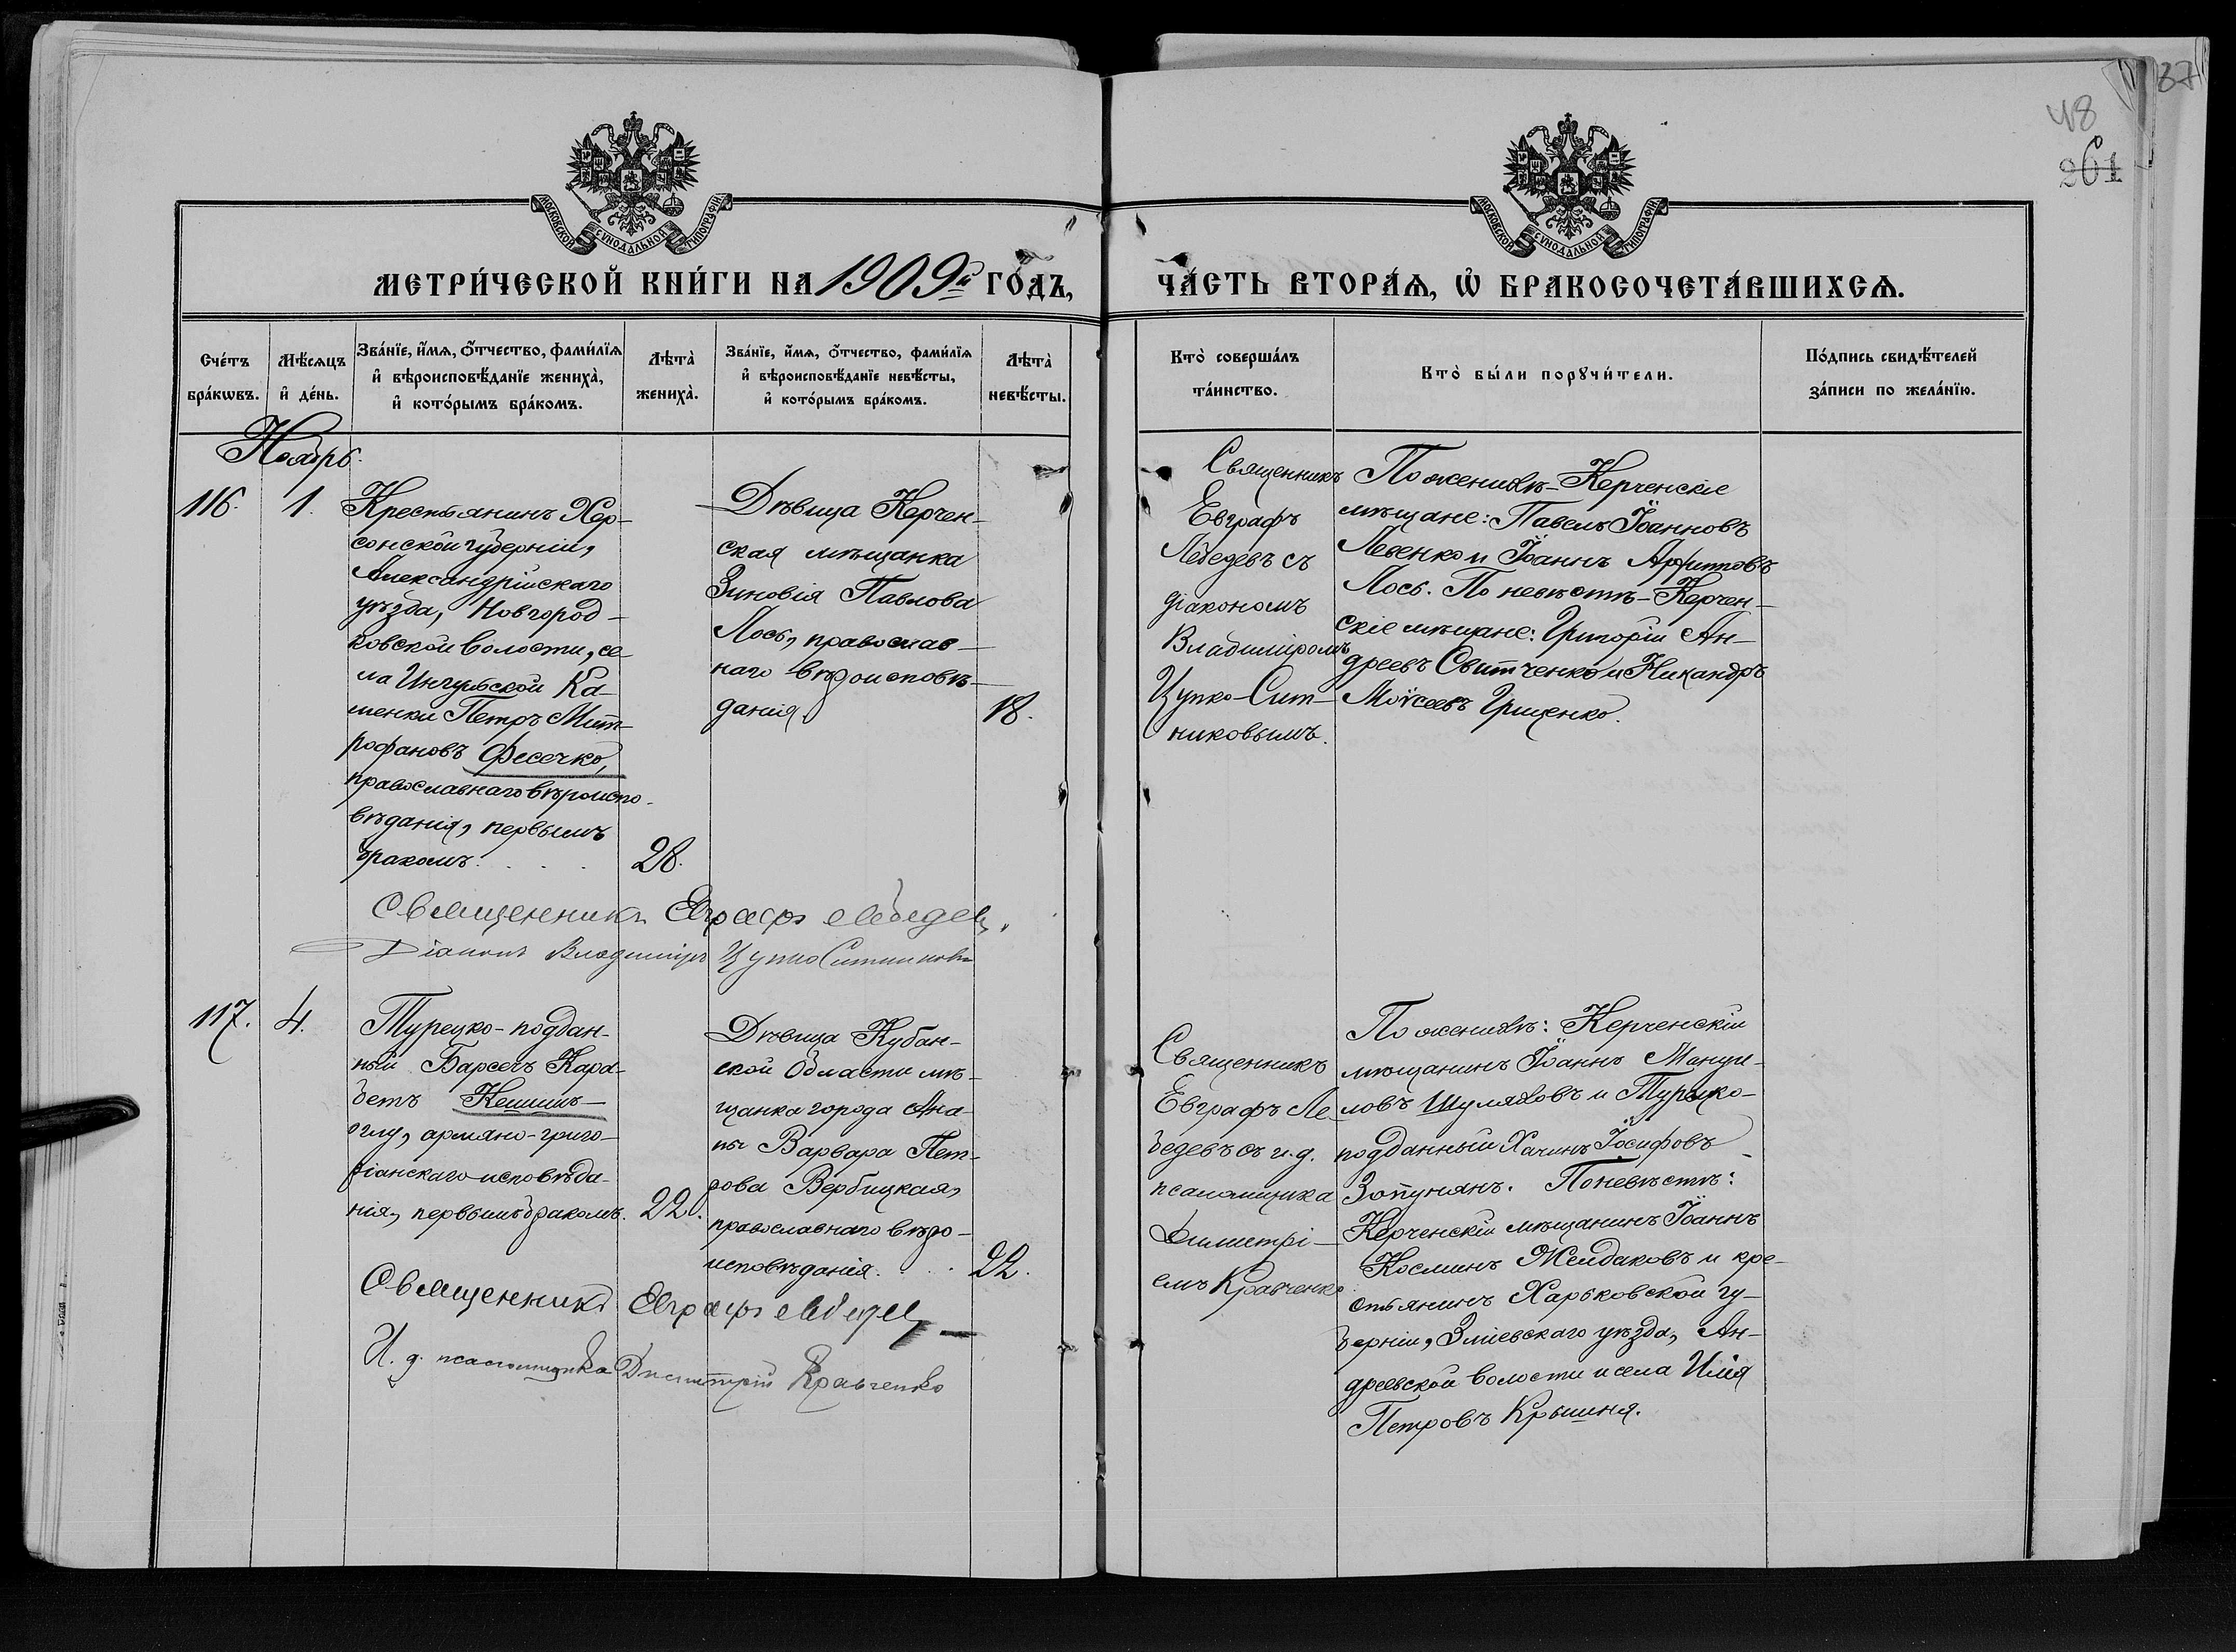 48
37
261
МОСКОВСКОЙ СѴНОДАЛЬНОЙ ТИПОГРАФІИ
МОСКОВСКОЙ СѴНОДАЛЬНОЙ ТИПОГРАФІИ
МЕТРИ́ЧЕСКОЙ КНИ́ГИ НА 1909й ГО́ДЪ,
ЧА́СТЬ ВТОРА́Ѧ, Ѡ҆ БРАКОСОЧЕТА́ВШИХСѦ.
Сче́тъ
бра́кѡвъ.
Мѣ́сѧцъ
и҆ де́нь.
Зва́нїе, и҆́мѧ, ѻ҆́тчество, фами́лїѧ
и҆ вѣроисповѣ́данїе жениха̀,
и҆ кото́рымъ бра́комъ.
Лѣта̀
жениха̀.
Зва́нїе, и҆́мѧ, ѻ҆́тчество, фами́лїѧ
и҆ вѣроисповѣ́данїе невѣ́сты,
и҆ кото́рымъ бра́комъ.
Лѣта̀
невѣ́сты.
Кто̀ соверша́лъ
та́инство.
Кто̀ бы́ли порꙋчи́тели.
По́дпись свидѣ́телей
за́писи по жела́нїю.
Ноябрь.
116.
1.
Крестьянинъ Хер-
сонской губерніи,
Александрійскаго
уѣзда, Новгород-
ковской волости, се-
ла Ингульской Ка-
менки Петръ Мит-
рофановъ Фесечко,
православнаго вѣроиспо-
вѣданія, первымъ
бракомъ. . . .
28.
Дѣвица Керчен-
ская мѣщанка
Зиновія Павлова
Лось, православ-
наго вѣроисповѣ-
данія
18.
Священникъ
Евграфъ
Лебедевъ съ
діакономъ
Владиміромъ
Цупко-Сит-
никовымъ.
По женихѣ - Керченскіе
мѣщане: Павелъ Іоанновъ
Левенко и Іоаннъ
Лось. По невѣстѣ - Керчен-
скіе мѣщане: Григорій Ан-
дреевъ Свитченко и Никандръ
Моѵсеевъ Грищенко.
Священникъ Евграфъ Лебедевъ.
Діаконъ Владиміръ Цупко Ситниковъ
117.
4.
Турецко-поддан-
ный Барсегъ Кара-
бетъ Кешишъ-
оглу, армяно-григо-
ріанскаго исповѣда-
нія, первымъ бракомъ.
22.
Дѣвица Кубан-
ской области мѣ-
щанка города Ана-
пы Варвара Пет-
рова Вербицкая,
православнаго вѣро-
исповѣданія. . . .
22.
Священникъ
Евграфъ Ле-
бедевъ съ и. д.
псаломщика
Димитрі-
емъ Кравченко
По женихѣ: Керченскій
мѣщанинъ Іоаннъ Мануи-
ловъ Шуляковъ и Турецко-
подданный Хачикъ Іосифовъ
Зопунянъ. По невѣстѣ:
Керченскій мѣщанинъ Іоаннъ
Косминъ Желдаковъ и кре-
стьянинъ Харьковской гу-
берніи, Зміевскаго уѣзда, Ан-
дреевской волости и села Илія
Петровъ Крышня.
Священникъ Евграфъ Лебедевъ
И. д. псаломщика Димитрій Кравченко